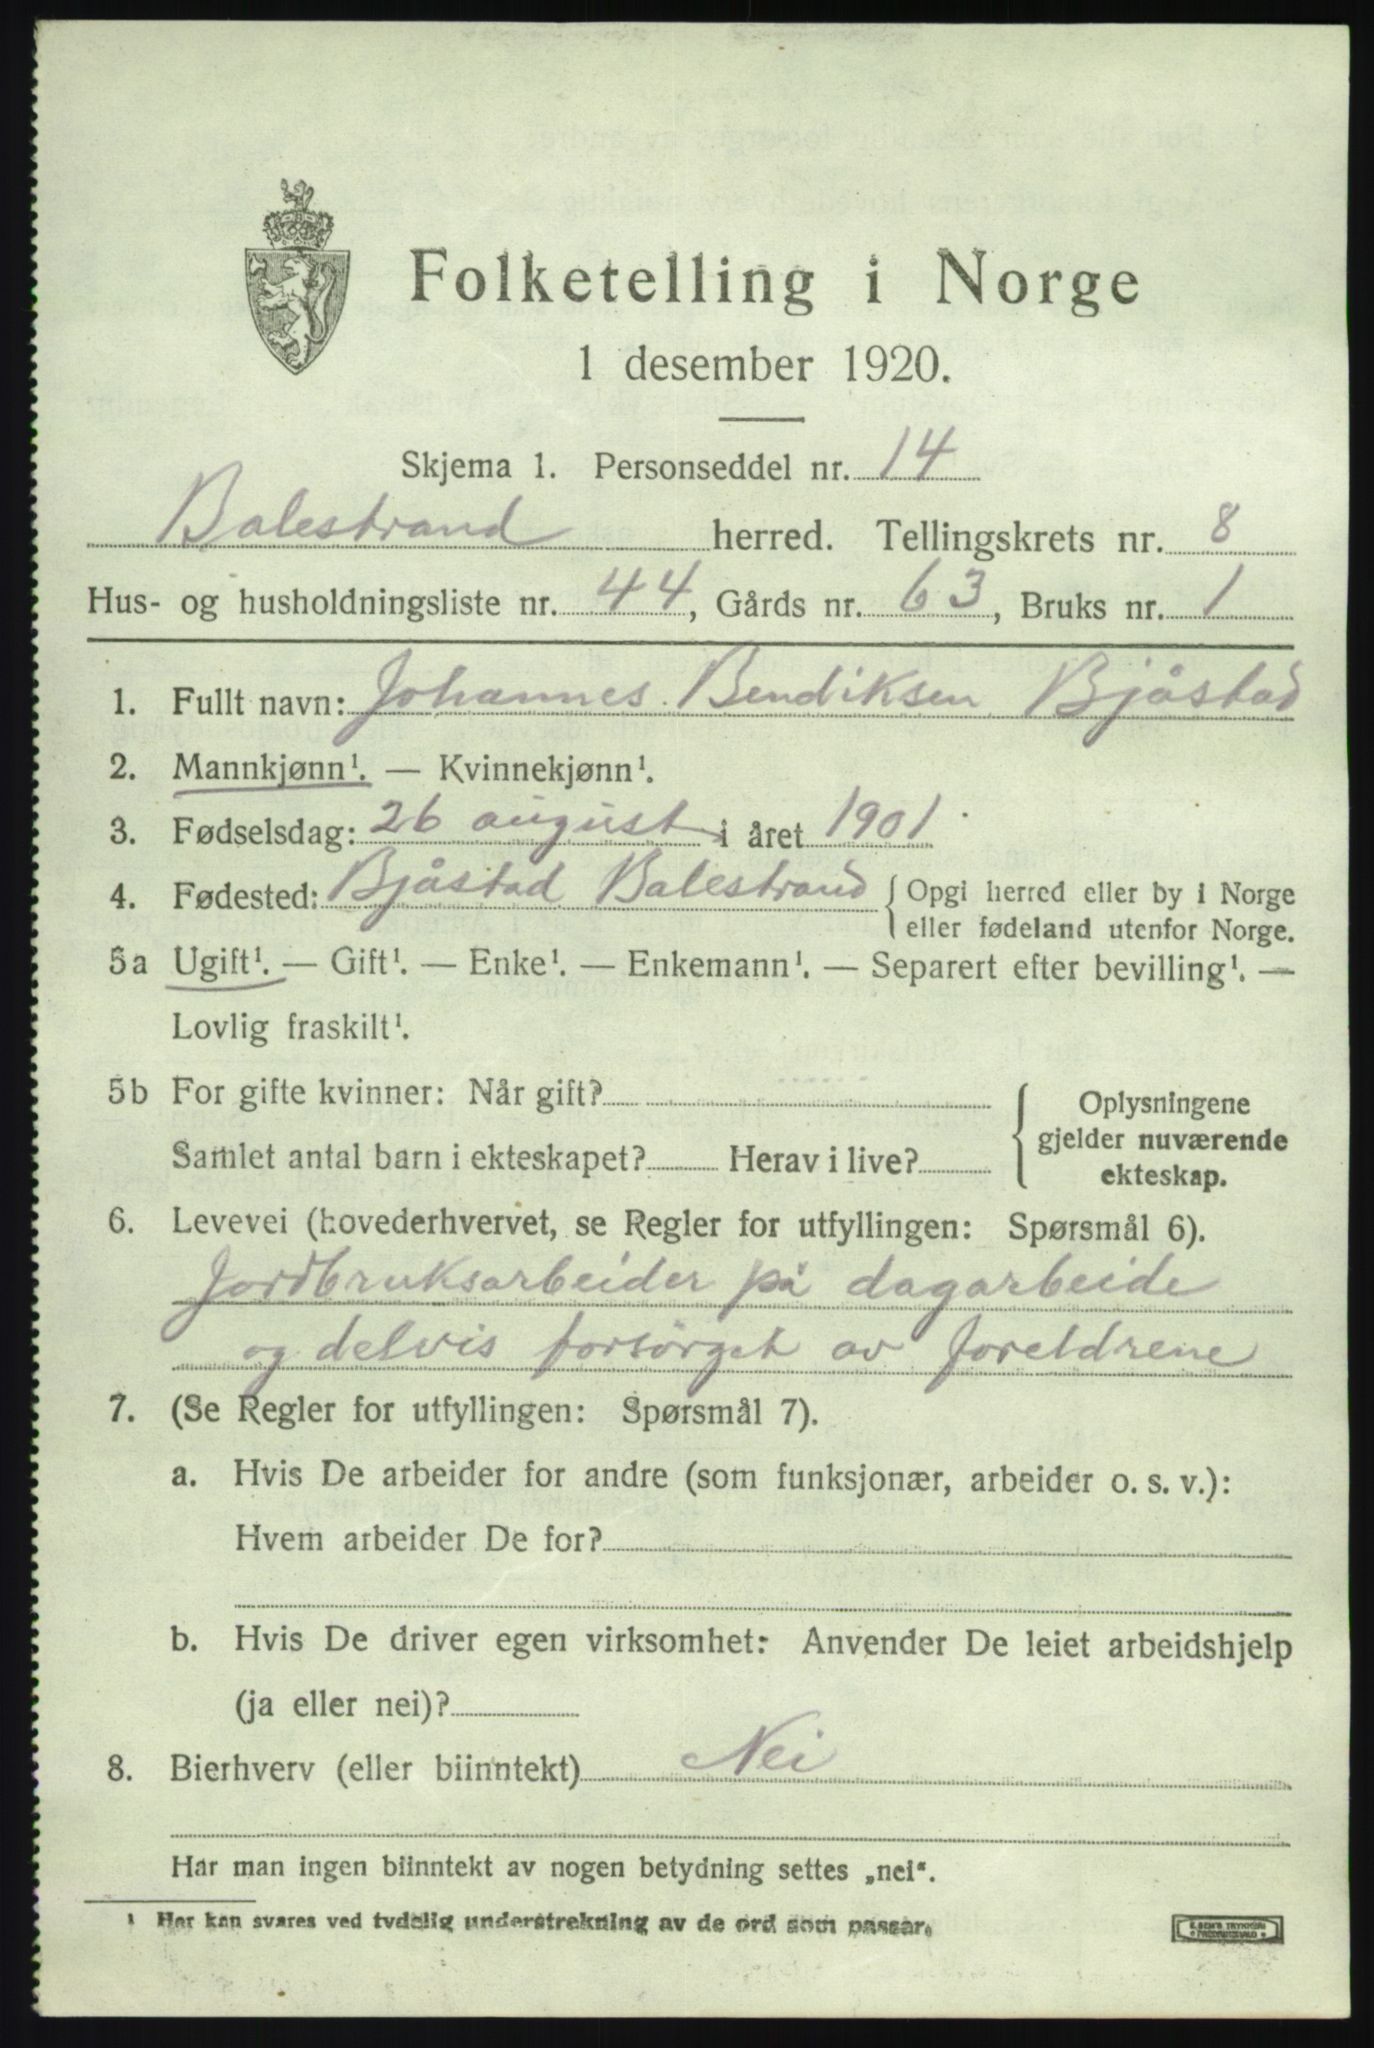 Folketelling i Norge
1 desember 1920.
Skjema 1. Personseddel nr. 14
Balestrand herred. Tellingskrets nr. 8
Hus- og husholdningsliste nr. 44, Gårds nr. 63, Bruks nr. 1
1. Fullt navn: Johannes Bendiksen Bjåstad
2. Mannkjønn¹. — Kvinnekjønn¹.
3. Fødselsdag: 26 august i året 1901.
4. Fødested: Bjåstad Balestrand { Opgi herred eller by i Norge
eller fødeland utenfor Norge.
5a Ugift¹. — Gift¹. — Enke¹. — Enkemann¹. — Separert efter bevilling¹. —
Lovlig fraskilt¹.
5b For gifte kvinner: Når gift?
Samlet antal barn i ekteskapet? Herav i live?
{ Oplysningene
gjelder nuværende
ekteskap.
6. Levevei (hovederhvervet, se Regler for utfyllingen: Spørsmål 6).
Jordbruksarbeider på dagarbeide
og delvis forsörget av foreldrene
7. (Se Regler for utfyllingen: Spørsmål 7).
a. Hvis De arbeider for andre (som funksjonær, arbeider o. s. v.):
Hvem arbeider De for?
b. Hvis De driver egen virksomhet: Anvender De leiet arbeidshjelp
(ja eller nei)?
8. Bierhverv (eller biinntekt) Nei
Har man ingen biinntekt av nogen betydning settes „nei“.
¹ Her kan svares ved tydelig understrekning av de ord som passar.